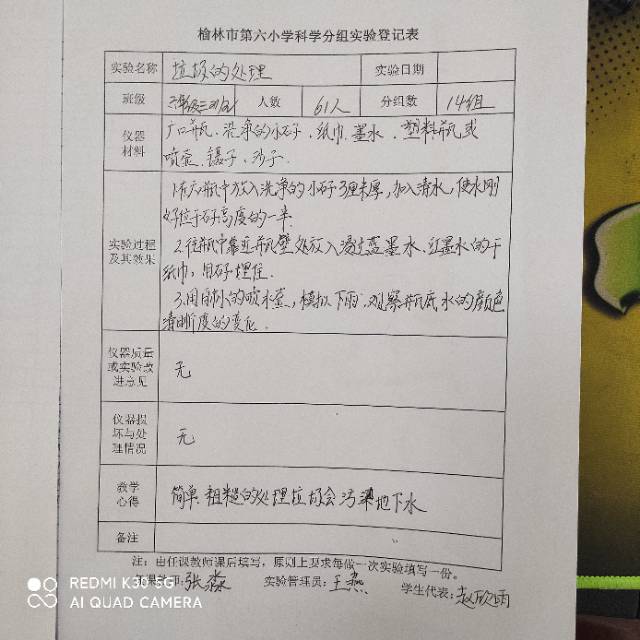 榆林市第六小学科学分组实验登记表
实验名称 垃圾的处理 实验日期
班级 人数 61人 分组数 14组
仪器材料 广口瓶、洗净的小石子、纸巾、墨水、塑料瓶或
喷壶、镊子、沙子.
实验过程及其效果 1.在广口瓶中放入洗净的小石子3厘米厚,加入清水,使水刚
好位于石子高度的一半.
2.往瓶中靠近瓶壁处放入浸过蓝墨水、红墨水的干
纸巾,用石子埋住.
3.用自制的喷水壶,模拟下雨,观察瓶底水的颜色
清晰度的变化.
仪器质量或实验改进意见 无
仪器损坏与处理情况 无
教学心得 简单、粗糙的处理垃圾会污染地下水
备注
注:由任课教师课后填写,原则上要求每做一次实验填写一份。
张淼 实验管理员:王燕 学生代表:赵欣雨
REDMI K30 5G
AI QUAD CAMERA